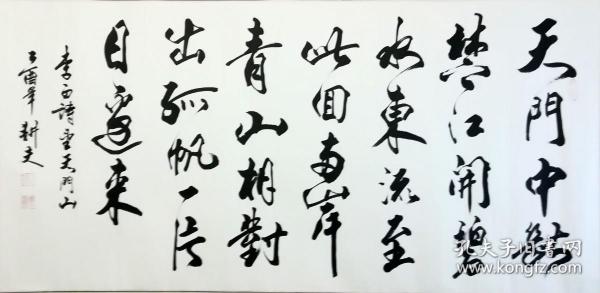 天門中斷
楚江開碧
水東流至
此回兩岸
青山相對
出孤帆一片
日邊來
李白詩望天門山
乙酉年 耕夫
孔夫子旧书网
www.kongfz.com